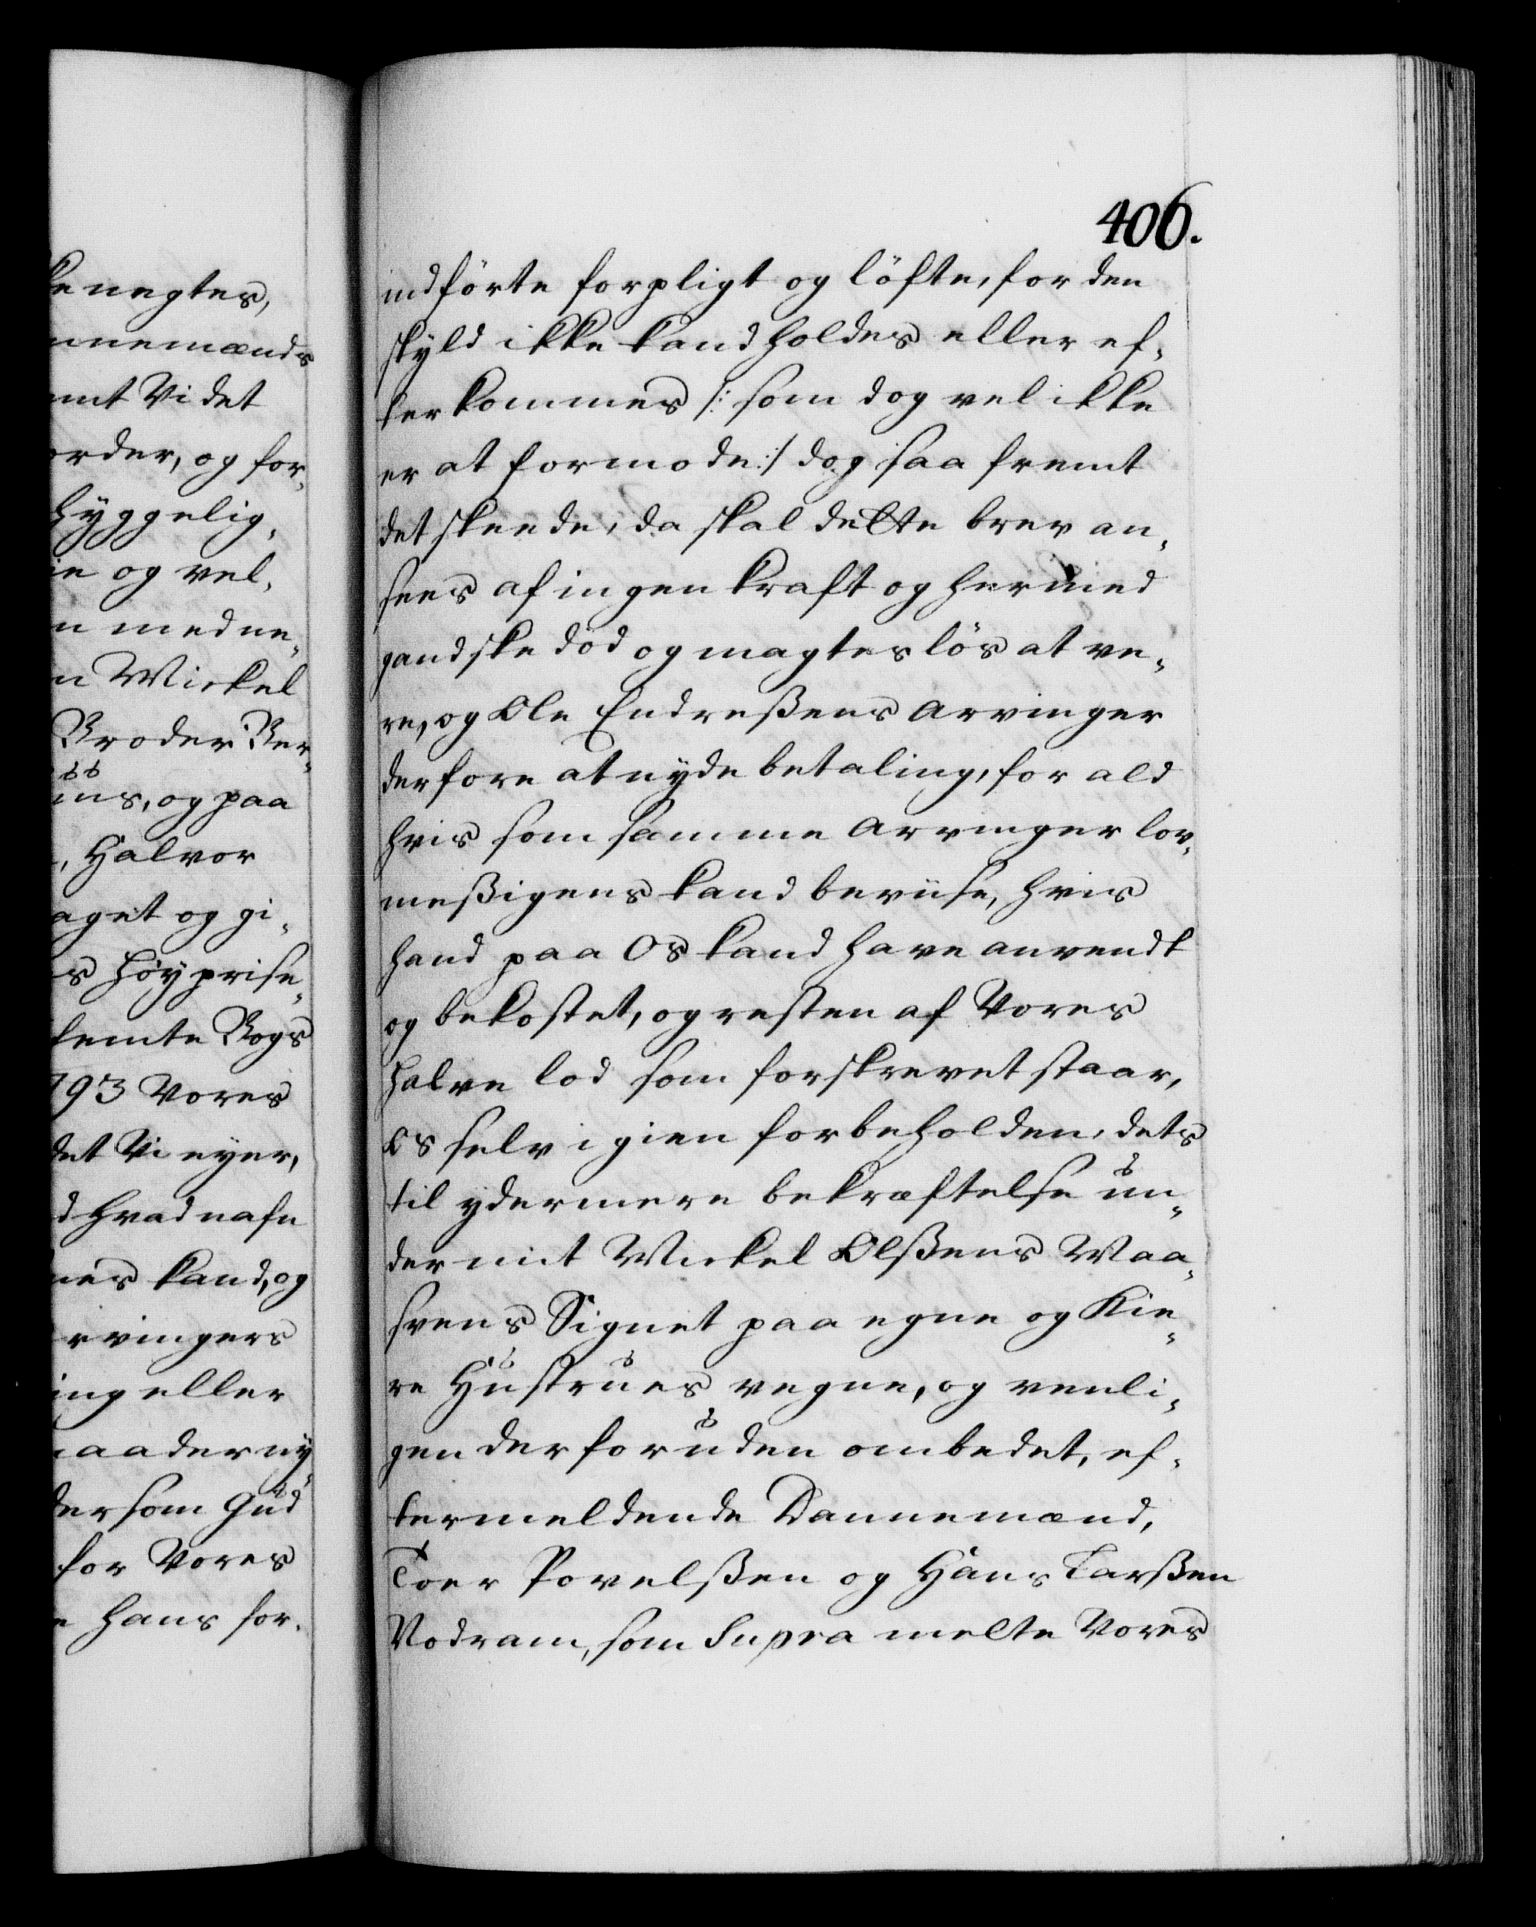 406.
kenegtes,
nnemænds
mt Vi det
order, og for-
hyggelig-
ie og vel-
n med ne-
n Mickel
Broder Ber-
uns, og paa
, Halvor
aget og gi-
s Höyprise-
femte Bogs
793 Vores
det Vi eyer,
d hvad nafn
nes kand, og
rvingers
ing eller
aader ny-
dersom Gud
for Vores
e hans for-
indförte forpligt og löfte, for den
skyld ikke kand holdes eller ef-
terkommes /: som dog vel ikke
er at formode :/ dog saa fremt
det skeede, da skal dette brev an-
sees af ingen kraft og hermed
gandske död og magteslös at ve-
re, og Ole Endreßens Arvinger
derfore at nyde betaling, for ald
hvis som samme Arvinger lov-
meßigens kand beviise, hvis
hand paa Os kand have anvendt
og bekostet, og resten af Vores
halve lod som forskrevet staar,
Os selv igien forbeholden, dets
til ydermere bekræftelse un-
der mit Mickel Olßens Maa-
svens Signet paa egne og Kie-
re Hustrues vegne, og venli-
gen derforuden ombedet, ef-
termeldende Dannemænd,
Toer Povelßen og Hans Larßen
Vodram, som Supra melte Vores